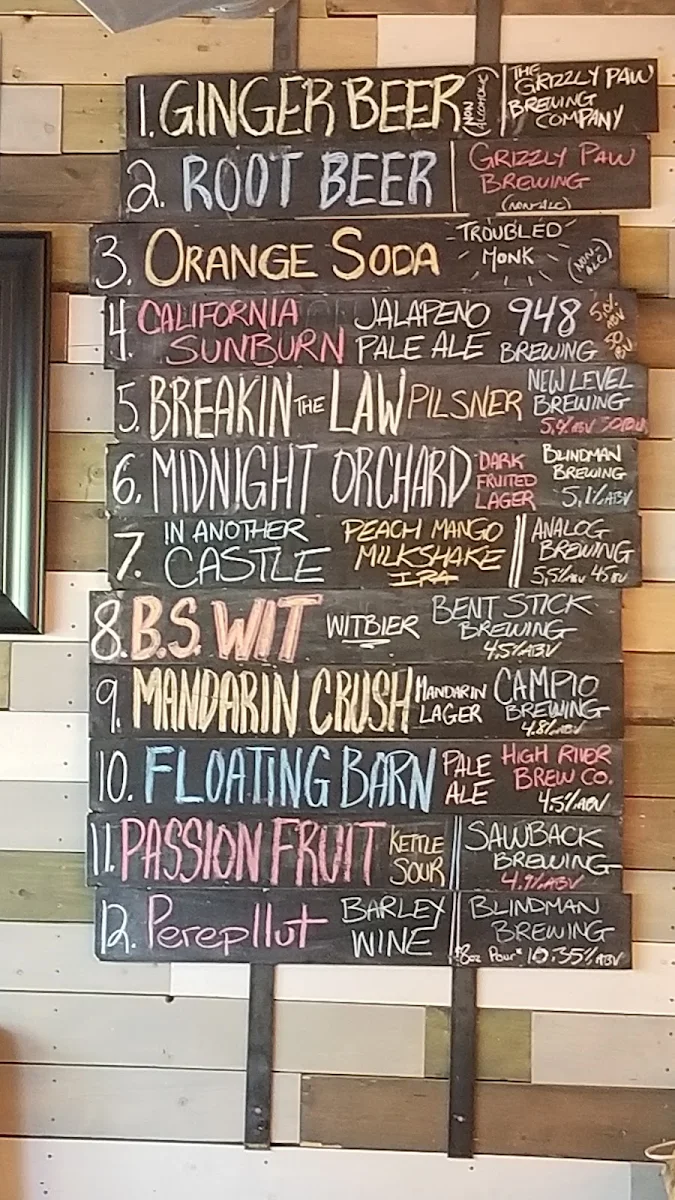 1. GINGER BEER (NON ALCOHOLIC) THE GRIZZLY PAW BREWING COMPANY
2. ROOT BEER GRIZZLY PAW BREWING (NON-ALC)
3. ORANGE SODA TROUBLED MONK (NON-ALC)
4. CALIFORNIA SUNBURN JALAPENO PALE ALE 948 BREWING 5.0% ABV 50 IBU
5. BREAKIN THE LAW PILSNER NEW LEVEL BREWING 5.% ABV
6. MIDNIGHT ORCHARD DARK FRUITED LAGER BLINDMAN BREWING 5,1% ABV
7. IN ANOTHER CASTLE PEACH MANGO MILKSHAKE IPA ANALOG BREWING 5,5% ABV 45 IBU
8. B.S. WIT WITBIER BENT STICK BREWING 4.5% ABV
9. MANDARIN CRUSH MANDARIN LAGER CAMPIO BREWING 4.8% ABV
10. FLOATING BARN PALE ALE HIGH RIVER BREW CO. 4.5% ABV
11. PASSION FRUIT KETTLE SOUR SAWBACK BREWING 4.9% ABV
12. Perepllut BARLEY WINE BLINDMAN BREWING *8oz Pour* 10.35% ABV